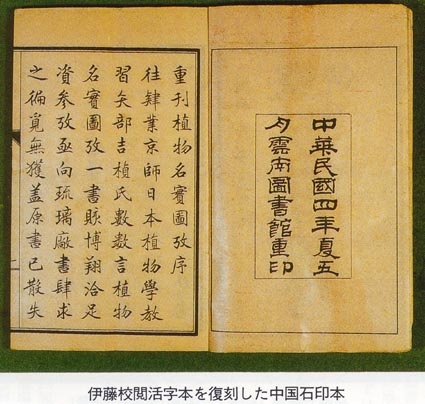 中華民國四年夏五
月雲南圖書館重印
重刊植物名實圖攷序
往肄業京師日本植物學教
習矢部吉楨氏數數言植物
名實圖攷一書賅博翔洽足
資參攷亟向琉璃廠書肆求
之徧覓無獲蓋原書已散失
伊藤校閲活字本を復刻した中国石印本